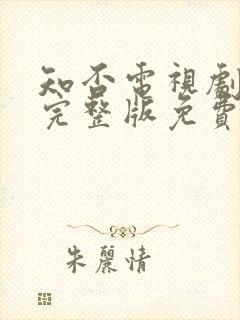 知否電視劇
完整版免費
朱麗情